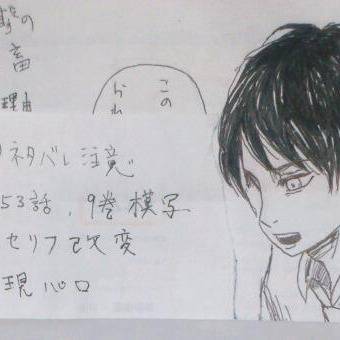 撃の
畜
理由
この
ネタバレ注意
53話, 9巻模写
セリフ改変
現パロ